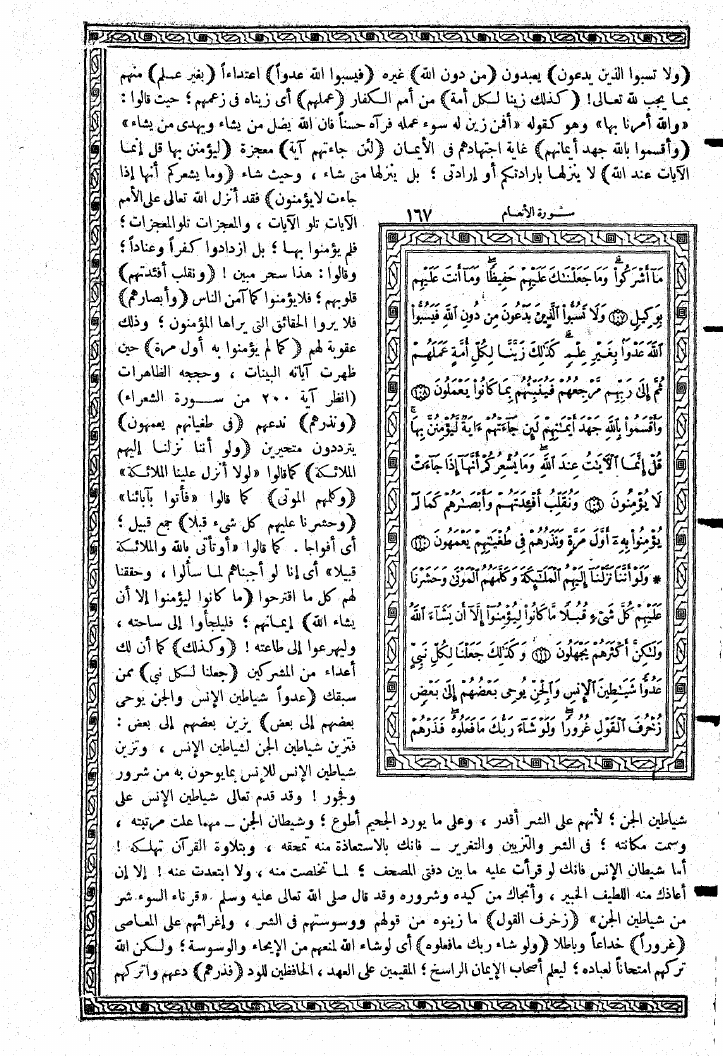 (ولا تسبوا الذين يدعون) يعبدون (من دون الله) غيره (فيسبوا الله عدواً) اعتداءاً (بغير علم) منهم
بما يجب لله تعالى! (كذلك زينا لكل أمة) من أمم الكفار (عملهم) أى زيناه فى زعمهم؛ حيث قالوا:
«والله أمرنا بها» وهو كقوله «أفمن زين له سوء عمله فرآه حسناً فان الله يضل من يشاء ويهدى من يشاء»
(وأقسموا بالله جهد أيمانهم) غاية اجتهادهم فى الأيمان (لئن جاءتهم آية) معجزة (ليؤمنن بها قل إنما
الآيات عند الله) لا ينزلها بارادتكم أو إرادتى؛ بل ينزلها متى شاء، وحيث شاء (وما يشعركم أنها إذا
جاءت لايؤمنون) فقد أنزل الله تعالى على الأمم
الآيات تلو الآيات، والمعجزات تلو المعجزات؛
فلم يؤمنوا بها؛ بل ازدادوا كفراً وعناداً؛
وقالوا: هذا سحر مبين! (ونقلب أفئدتهم)
قلوبهم؛ فلايؤمنوا كما آمن الناس (وأبصارهم)
فلا يروا الحقائق التى يراها المؤمنون؛ وذلك
عقوبة لهم (كما لم يؤمنوا به أول مرة) حين
ظهرت آياته البينات، وحججه الظاهرات
(انظر آية ٢٠٠ من سورة الشعراء)
(ونذرهم) ندعهم (فى طغيانهم يعمهون)
يترددون متحيرين (ولو أننا نزلنا إليهم
الملائكة) كما قالوا «لولا أنزل علينا الملائكة»
(وكلمهم الموتى) كما قالوا «فأتوا بآبائنا»
(وحشرنا عليهم كل شىء قبلا) جمع قبيل؛
أى أفواجا. كما قالوا «أو تأتى بالله والملائكة
قبيلا» أى إنا لو أجبناهم لما سألوا، وحققنا
لهم كل ما اقترحوا (ما كانوا ليؤمنوا إلا أن
يشاء الله) إيمانهم؛ فليلجأوا إلى ساحته،
وليهرعوا إلى طاعته! (وكذلك) كما أن لك
أعداء من المشركين (جعلنا لكل نبى) ممن
سبقك (عدواً شياطين الإنس والجن يوحى
بعضهم إلى بعض) يزين بعضهم إلى بعض:
فتزين شياطين الجن لشياطين الإنس، وتزين
شياطين الإنس للإنس بما يوحون به من شرور
وفجور! وقد قدم تعالى شياطين الإنس على
سورة الأنعام ١٦٧
مَآ أَشْرَكُوا۟ ۗ وَمَا جَعَلْنَـٰكَ عَلَيْهِمْ حَفِيظًا ۖ وَمَآ أَنتَ عَلَيْهِم
بِوَكِيلٍ ﴿١٠٧﴾ وَلَا تَسُبُّوا۟ ٱلَّذِينَ يَدْعُونَ مِن دُونِ ٱللَّهِ فَيَسُبُّوا۟
ٱللَّهَ عَدْوًۢا بِغَيْرِ عِلْمٍ ۗ كَذَٰلِكَ زَيَّنَّا لِكُلِّ أُمَّةٍ عَمَلَهُمْ
ثُمَّ إِلَىٰ رَبِّهِم مَّرْجِعُهُمْ فَيُنَبِّئُهُم بِمَا كَانُوا۟ يَعْمَلُونَ ﴿١٠٨﴾
وَأَقْسَمُوا۟ بِٱللَّهِ جَهْدَ أَيْمَـٰنِهِمْ لَئِن جَآءَتْهُمْ ءَايَةٌ لَّيُؤْمِنُنَّ بِهَا ۚ
قُلْ إِنَّمَا ٱلْـَٔايَـٰتُ عِندَ ٱللَّهِ ۖ وَمَا يُشْعِرُكُمْ أَنَّهَآ إِذَا جَآءَتْ
لَا يُؤْمِنُونَ ﴿١٠٩﴾ وَنُقَلِّبُ أَفْـِٔدَتَهُمْ وَأَبْصَـٰرَهُمْ كَمَا لَمْ
يُؤْمِنُوا۟ بِهِۦٓ أَوَّلَ مَرَّةٍ وَنَذَرُهُمْ فِى طُغْيَـٰنِهِمْ يَعْمَهُونَ ﴿١١٠﴾
* وَلَوْ أَنَّنَا نَزَّلْنَآ إِلَيْهِمُ ٱلْمَلَـٰٓئِكَةَ وَكَلَّمَهُمُ ٱلْمَوْتَىٰ وَحَشَرْنَا
عَلَيْهِمْ كُلَّ شَىْءٍ قُبُلًا مَّا كَانُوا۟ لِيُؤْمِنُوٓا۟ إِلَّآ أَن يَشَآءَ ٱللَّهُ
وَلَـٰكِنَّ أَكْثَرَهُمْ يَجْهَلُونَ ﴿١١١﴾ وَكَذَٰلِكَ جَعَلْنَا لِكُلِّ نَبِىٍّ
عَدُوًّا شَيَـٰطِينَ ٱلْإِنسِ وَٱلْجِنِّ يُوحِى بَعْضُهُمْ إِلَىٰ بَعْضٍ
زُخْرُفَ ٱلْقَوْلِ غُرُورًا ۚ وَلَوْ شَآءَ رَبُّكَ مَا فَعَلُوهُ ۖ فَذَرْهُمْ
شياطين الجن؛ لأنهم على الشر أقدر، وعلى ما يورد الجحيم أطوع؛ وشيطان الجن - مهما علت مرتبته،
وسمت مكانته؛ فى الشر والتزيين والتغرير - فانك بالاستعاذة منه تمحقه، وبتلاوة القرآن تهلكه!
أما شيطان الإنس فانك لو قرأت عليه ما بين دفتى المصحف؛ لما تخلصت منه، ولا ابتعدت عنه! إلا إن
أعاذك منه اللطيف الخبير، وأنجاك من كيده وشروره وقد قال صلى الله تعالى عليه وسلم «قرناء السوء شر
من شياطين الجن» (زخرف القول) ما زينوه من قولهم ووسوستهم فى الشر، وإغرائهم على المعاصى
(غروراً) خداعاً وباطلا (ولو شاء ربك مافعلوه) أى لو شاء الله لمنعهم من الإيحاء والوسوسة؛ ولكن الله
تركهم امتحاناً لعباده؛ ليعلم أصحاب الإيمان الراسخ؛ المقيمين على العهد، الحافظين للود (فذرهم) دعهم واتركهم